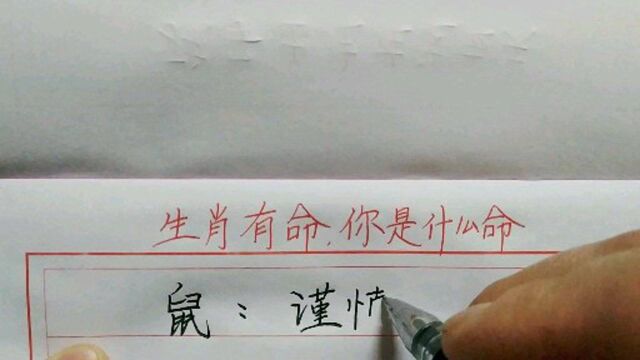 生肖有命,你是什么命
鼠:谨